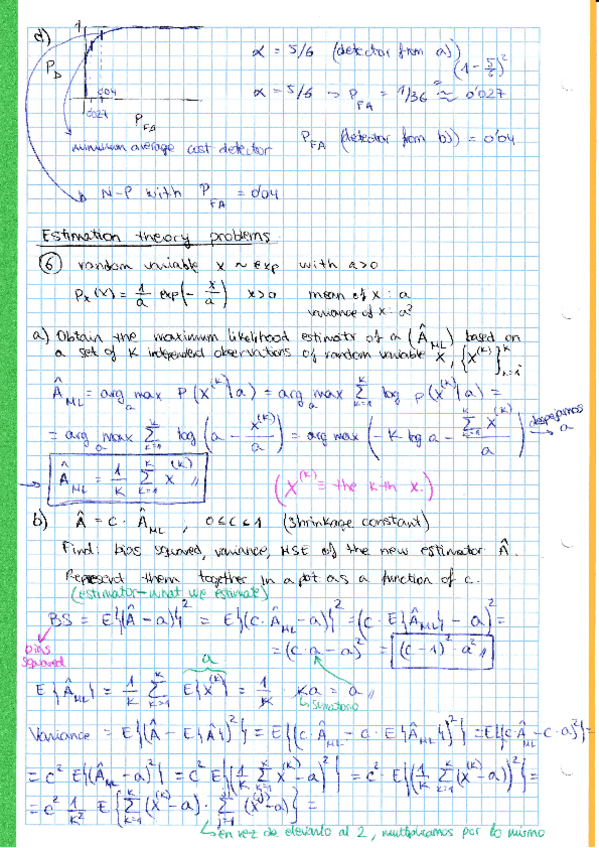 d)
1
P_D
0'04
0'027
P_FA
α = 5/6 (detector from a))
(1 - 5/6)²
α = 5/6 → P_FA = 1/36 ≈ 0'027
P_FA (detector from b)) = 0'04
minimum average cost detector
N-P with P_FA = 0'04
Estimation theory problems.
⑥ random variable x ~ exp with a>0
P_x(x) = 1/a exp(- x/a) x>0 mean of x : a
variance of x : a²
a) Obtain the maximum likelihood estimator of a (Â_ML) based on
a set of K independent observations of random variable X, {X^(k)}^K_k=1.
Â_ML = arg max_a P(X^(k)|a) = arg max_a Σ_{k=1}^K log p(X^(k)|a) =
= arg max_a Σ_{k=1}^K log(a - X^(k)/a) = arg max(-K log a - Σ_{k=1}^K X^(k)/a) → despejamos a
→ Â_ML = 1/K Σ_{k=1}^K X^(k) //
(X^(k) ≡ the k-th x.)
b) Â = c · Â_ML , 0≤c≤1 (shrinkage constant)
Find: bias squared, variance, MSE of the new estimator Â.
Represent them together in a plot as a function of c.
(estimator - what we estimate)
BS = E{(Â - a)}² = E{(c·Â_ML - a)}² = (c·E{Â_ML} - a)² =
bias squared
= (c·a - a)² = (c-1)²·a² //
a
E{Â_ML} = 1/K Σ_{k=1}^K E{X^(k)} = 1/K · Ka = a //
↳ sumatorio
Variance = E{(Â - E{Â})²} = E{(c·Â_ML - c·E{Â_ML})²} = E{(c·Â_ML - c·a)²} =
= c² E{(Â_ML - a)²} = c² E{(1/K Σ_{k=1}^K X^(k) - a)²} = c²·E{(1/K Σ_{k=1}^K (X^(k) - a))²} =
= c² 1/K² E{Σ_{k=1}^K (X^(k) - a) · Σ_{j=1} (X^(j) - a)} =
↳ en vez de elevarlo al 2, multiplicamos por lo mismo